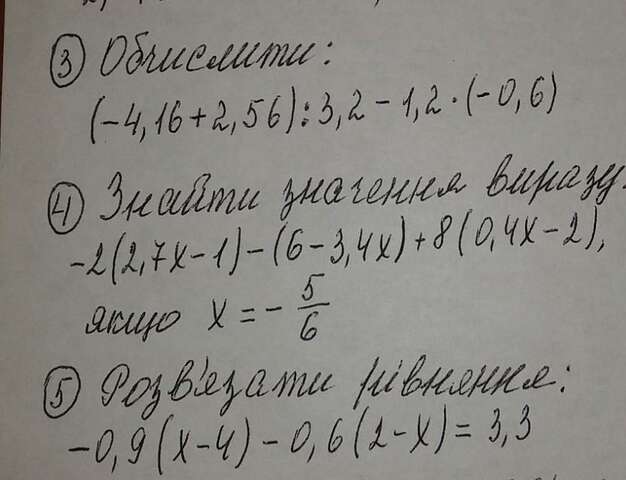 ③ Обчислити:
(-4,16+2,56):3,2-1,2·(-0,6)
④ Знайти значення виразу.
-2(2,7x-1)-(6-3,4x)+8(0,4x-2),
якщо x=-5/6
⑤ Розв'язати рівняння:
-0,9(x-4)-0,6(2-x)=3,3